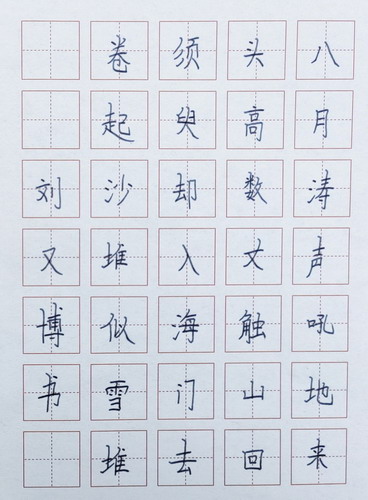 八月涛声吼地来
头高数丈触山回
须臾却入海门去
卷起沙堆似雪堆
刘又博书